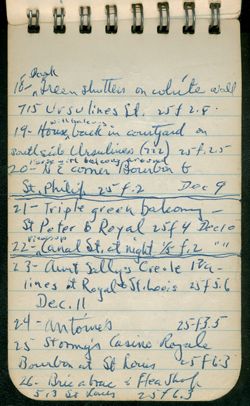 dark
18- green shutters on white wall
715 Ursulines St. 25 f 2.8
with balcony
19- House back in courtyard on
south side Ursulines (722) 25 f 2.5
house with balcony around
20- N E corner Bourbon &
St. Philip 25 f.2 Dec 9
21- Triple green balcony -
St Peter & Royal 25 f 4 Dec 10
22- Canal St. at night 1/5 f.2 " "
23- Aunt Sally's Creole Pra-
lines at Royal & St. Louis 25 f 5.6
Dec. 11
24- Antoine's 25 f 3.5
25 Stormy's Casino Royale
Bourbon at St Louis 25 f 6.3
26- Bric a brac & Flea Shop
513 St Louis 25 f 6.3